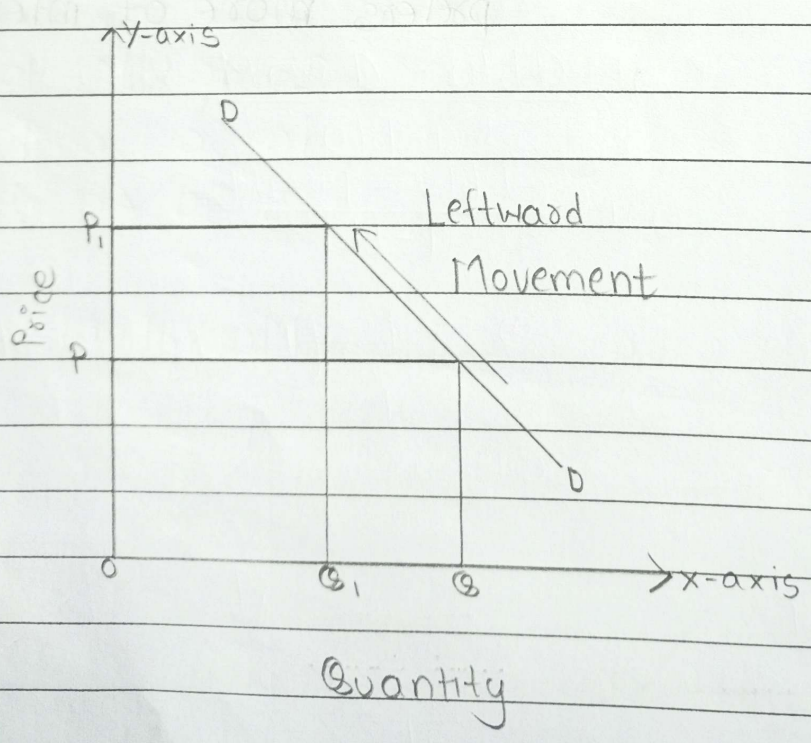 Y-axis
D
Leftward
P1
Movement
Price
P
D
O
Q1
Q
X-axis
Quantity